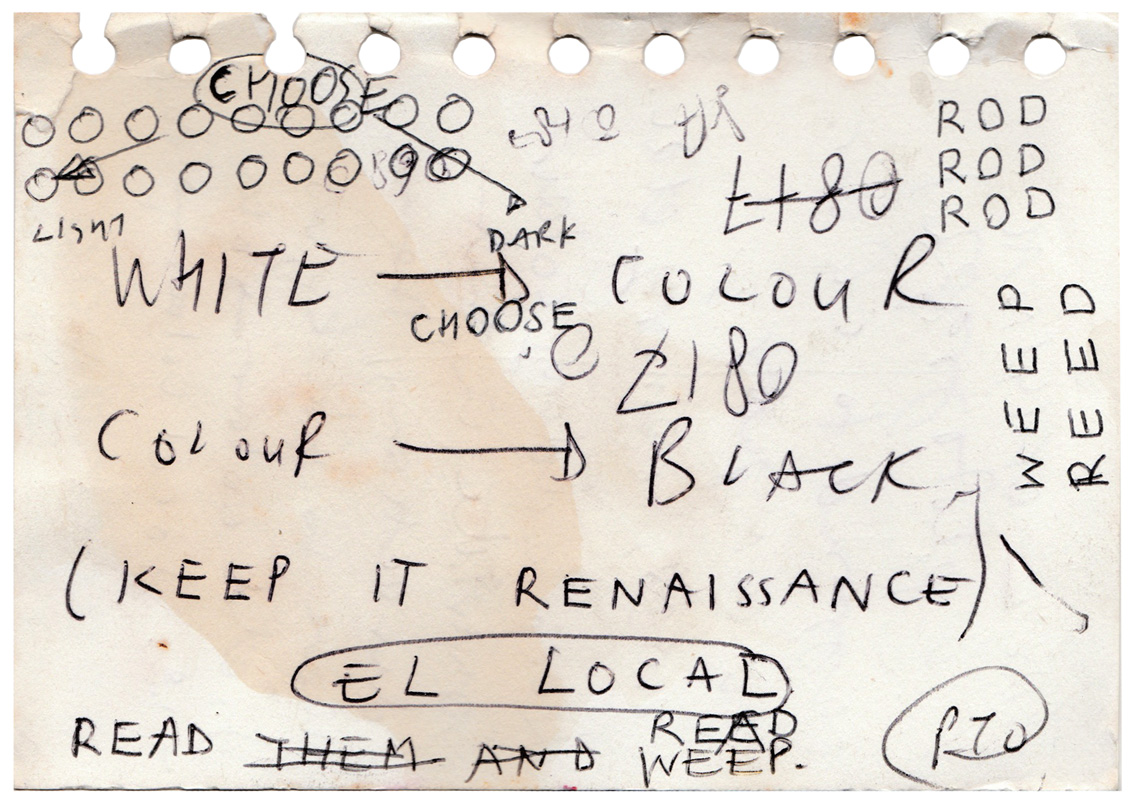 CHOOSE
ROD
ROD
£180
ROD
LIGHT
DARK
WHITE → COLOUR
CHOOSE
£180
WEEP
REED
COLOUR → BLACK
(KEEP IT RENAISSANCE)
EL LOCAL
READ THEM AND READ
WEEP.
PTO